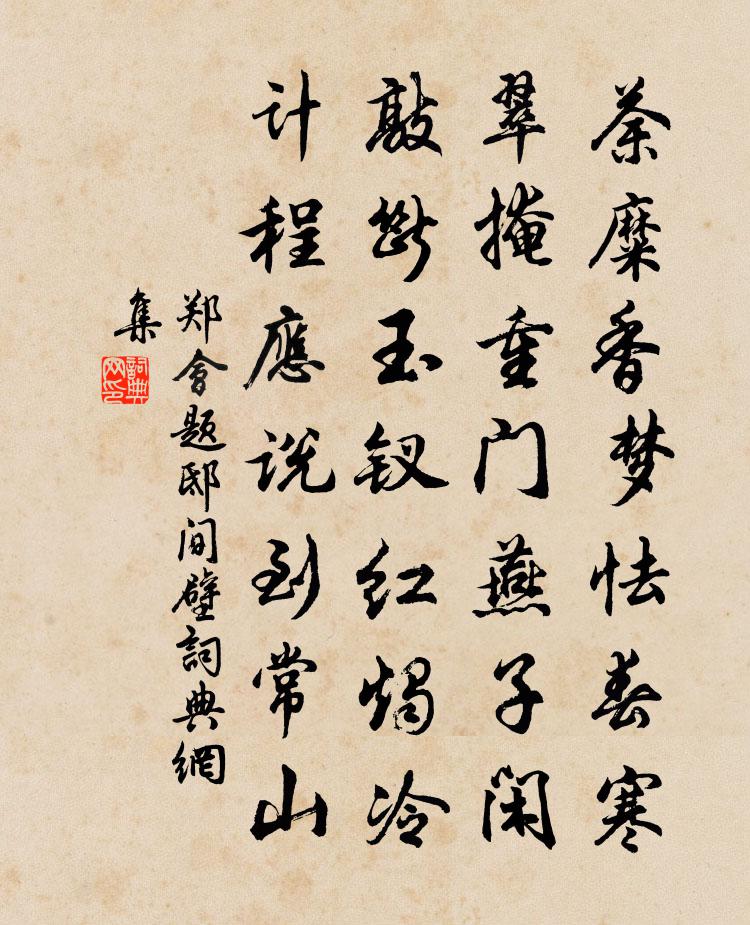 荼糜香梦怯春寒
翠掩重门燕子闲
敲断玉钗红烛冷
计程應说到常山
郑會题邸间壁詞典網
集
詞典
网印